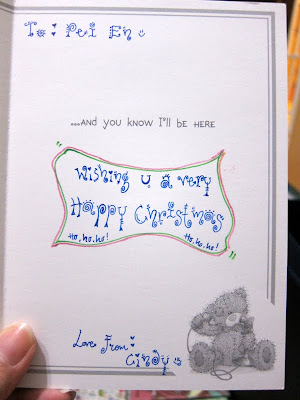 To: Pei En
...AND YOU KNOW I'LL BE HERE
Wishing u a very
Happy Christmas
Ho, ho, ho! Ho, ho, ho!
Love From:
Cindy